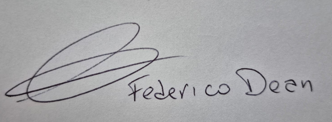 Federico Dean